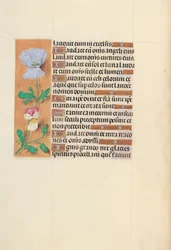 laudate eum in excelsis
audate eum omnes angeli eius
laudate eum omnes uirtutes eius
eum sol et luna
eum omnes stelle et lumen
audate eum celi celorum et
aque que super celos sunt laudent
nomen domini
ipse dixit et facta sunt
mandauit et creata sunt
tatuit ea in eternum et in
seculum seculi preceptum posuit et
non preteribit
audate
cones et omnes abyssi
gnis grando nix glacies
spiritus procellarum que faciunt